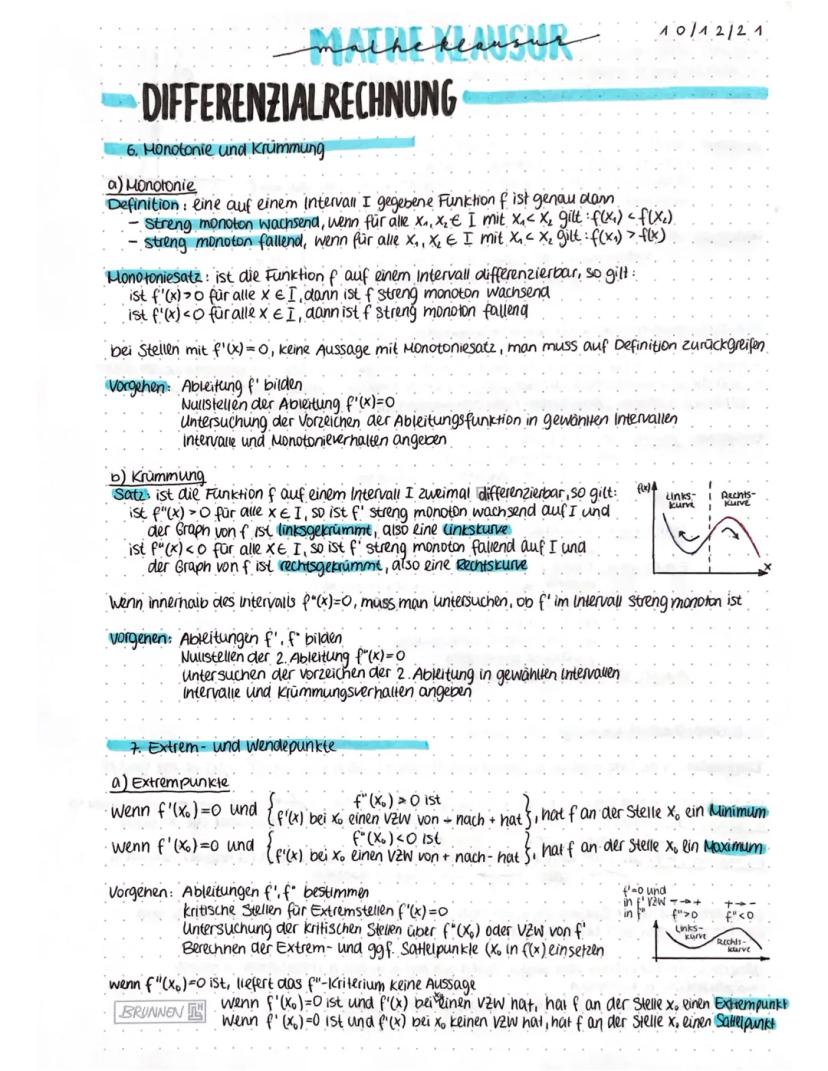 MATHE KLAUSUR
mathe klausur
10/12/21
DIFFERENZIALRECHNUNG
6. Monotonie und Krümmung
a) Monotonie
Definition: eine auf einem Intervall I gegebene Funktion f ist genau dann
- streng monoton wachsend, wenn für alle x₁, x₂ ∈ I mit x₁ < x₂ gilt: f(x₁) < f(x₂)
- streng monoton fallend, wenn für alle x₁, x₂ ∈ I mit x₁ < x₂ gilt: f(x₁) > f(x)
Monotoniesatz: ist die Funktion f auf einem Intervall differenzierbar, so gilt:
ist f'(x) > 0 für alle x ∈ I, dann ist f streng monoton wachsend
ist f'(x) < 0 für alle x ∈ I, dann ist f streng monoton fallend
bei Stellen mit f'(x) = 0, keine Aussage mit Monotoniesatz, man muss auf Definition zurückgreifen
Vorgehen: Ableitung f' bilden
Nullstellen der Ableitung f'(x)=0
Untersuchung der Vorzeichen der Ableitungsfunktion in gewählten Intervallen
Intervalle und Monotonieverhalten angeben
b) Krümmung
Satz: ist die Funktion f auf einem Intervall I zweimal differenzierbar, so gilt:
ist f"(x) > 0 für alle x ∈ I, so ist f' streng monoton wachsend auf I und
der Graph von f ist linksgekrümmt, also eine Linkskurve
ist f"(x) < 0 für alle x ∈ I, so ist f' streng monoton fallend auf I und
der Graph von f ist rechtsgekrümmt, also eine Rechtskurve
f(x)
Links-
kurve
Rechts-
kurve
x
Wenn innerhalb des Intervalls f"(x)=0, muss man untersuchen, ob f' im Intervall streng monoton ist
Vorgehen: Ableitungen f', f" bilden
Nullstellen der 2. Ableitung f"(x)=0
Untersuchen der Vorzeichen der 2. Ableitung in gewählten Intervallen
Intervalle und Krümmungsverhalten angeben
7. Extrem- und Wendepunkte
a) Extrempunkte
f"(x₀) > 0 ist
wenn f'(x₀)=0 und { f'(x) bei x₀ einen VZW von - nach + hat }, hat f an der Stelle x₀ ein Minimum
f"(x₀) < 0 ist
wenn f'(x₀)=0 und { f'(x) bei x₀ einen VZW von + nach - hat }, hat f an der Stelle x₀ ein Maximum
Vorgehen: Ableitungen f', f" bestimmen
kritische Stellen für Extremstellen f'(x)=0
Untersuchung der kritischen Stellen über f"(x₀) oder VZW von f'
Berechnen der Extrem- und ggf. Sattelpunkte (x₀ in f(x) einsetzen
f'=0 und
in f' VZW - → + + → -
in f" f">0 f"<0
Links-
kurve
Rechts-
kurve
wenn f"(x₀)=0 ist, liefert das f"-Kriterium keine Aussage
BRUNNEN
wenn f'(x₀)=0 ist und f'(x) bei x₀ einen VZW hat, hat f an der Stelle x₀ einen Extrempunkt
wenn f'(x₀)=0 ist und f'(x) bei x₀ keinen VZW hat, hat f an der Stelle x₀ einen Sattelpunkt